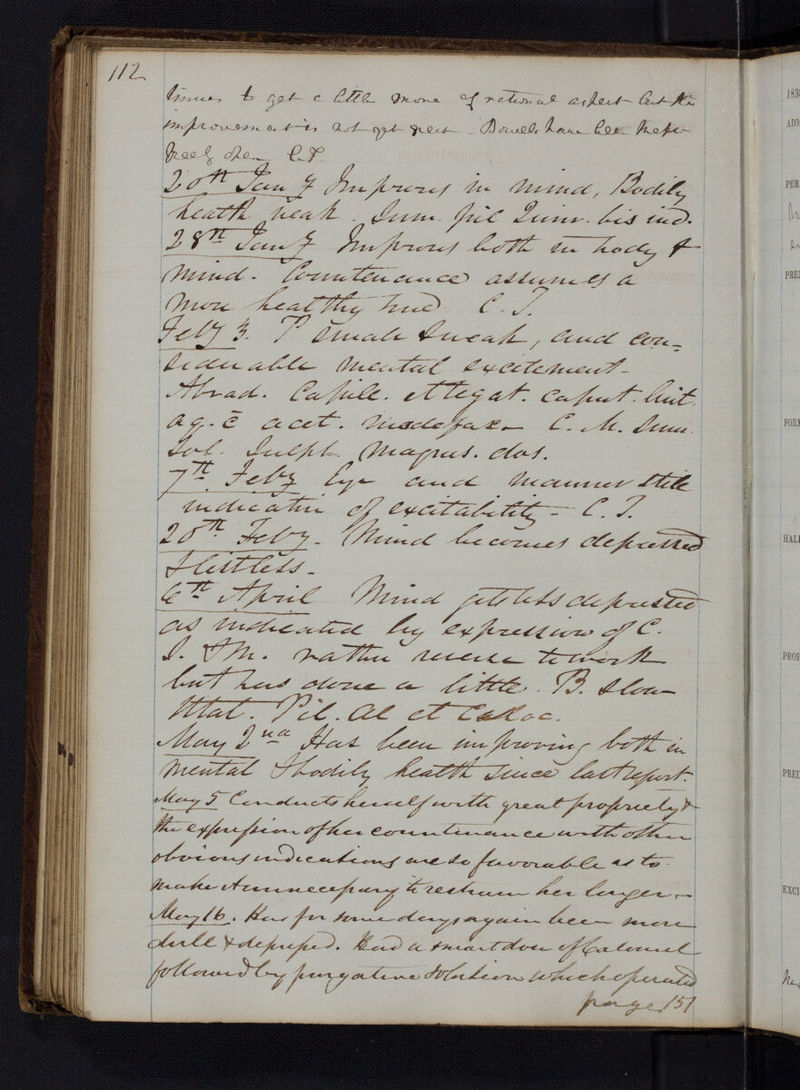 112
tinues to get a little more of rational aspect but the
improvement is not yet great Bowels have been kept
freely open C.T.
20th Jany Improves in mind, Bodily
health weak. Sum. pil Quin. bis ind.
28th Jany Improves both in body &
mind - Countenance assumes a
more healthy hue C. T.
Feby 3. P small & weak, and con=
siderable mental excitement -
Abrad. Capill. et tegat. caput. lint.
aq. c̄ acet. madefac - C. M. Sum.
Sol. Sulph. Magnes. dos.
7th Feby Eye and manner still
indicative of excitability - C. T.
20th Feby - Mind becomes depressed
& listless -
6th April Mind gets less depressed
as indicated by expression of C.
& M. rather averse to work
but has done a little. B. slow
Mat. Pil. Al et Coloc.
May 2nd Has been improving both in
mental & bodily health since last report
May 5 Conducts herself with great propriety &
the expression of her countenance with other
obvious indications are so favorable as to
make it unnecessary to restrain her longer -
May 16. Has for some days again been more
dull & depressed. Had a smart dose of Calomel
followed by purgative solution which operated
page 151
183
ADM
PER
PRE
FORM
HAL
PROP
PRED
EXCI